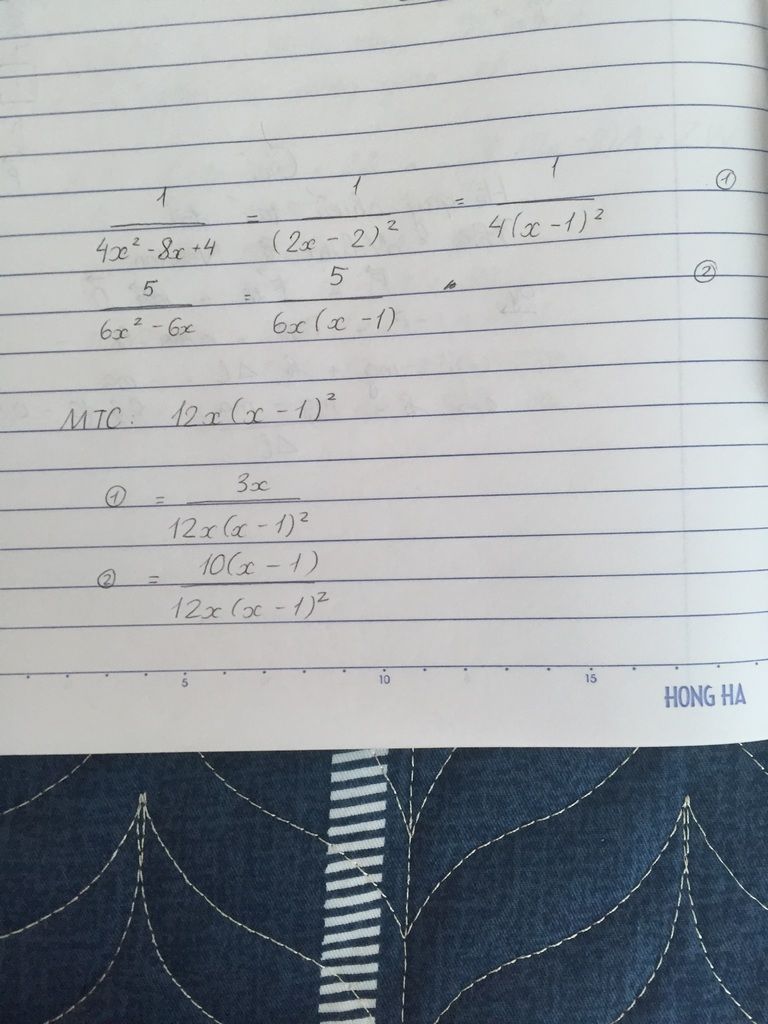 1/(4x² - 8x + 4) = 1/(2x - 2)² = 1/4(x - 1)² ①
5/(6x² - 6x) = 5/6x(x - 1) ②
MTC: 12x(x - 1)²
① = 3x/12x(x - 1)²
② = 10(x - 1)/12x(x - 1)²
5 10 15
HONG HA